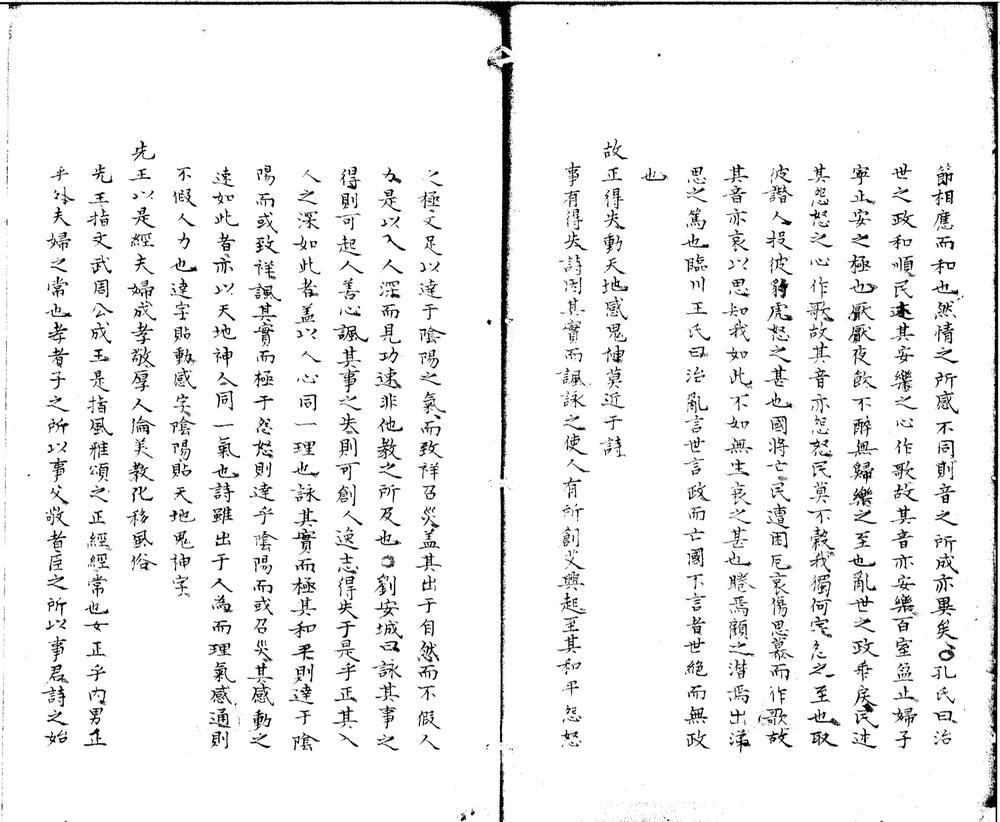 節相應而和也然情之所感不同則音之所成亦異矣○孔氏曰治
世之政和順民述其安樂之心作歌故其音亦安樂百室盈止婦子
寧止安之極也厭厭夜飲不醉無歸樂之至也亂世之政乖戾民述
其怨怒之心作歌故其音亦怨怒民莫不穀我獨何害怨之至也取
彼譖人投彼豺虎怒之甚也國將亡民遭困厄哀傷思慕而作歌故
其音亦哀以思知我如此不如無生哀之甚也睠焉顧之潸焉出涕
思之篤也臨川王氏曰治亂言世言政而亡國不言者世絕而無政
也
故正得失動天地感鬼神莫近于詩
事有得失詩因其實而諷詠之使人有所創艾興起至其和平怨怒
之極又足以達于陰陽之氣而致祥召災蓋其出于自然而不假人
力是以入人深而見功速非他教之所及也○劉安城曰詠其事之
得則可起人善心諷其事之失則可創人逸志得失于是乎正其入
人之深如此者蓋以人心同一理也詠其實而極其和平則達于陰
陽而或致祥諷其實而極于怨怒則達乎陰陽而或召災其感動之
速如此者亦以天地神人同一氣也詩雖出于人為而理氣感通則
不假人力也達字貼動感字陰陽貼天地鬼神字
先王以是經夫婦成孝敬厚人倫美教化移風俗
先王指文武周公成王是指風雅頌之正經經常也女正乎內男正
乎外夫婦之常也孝者子之所以事父敬者臣之所以事君詩之始